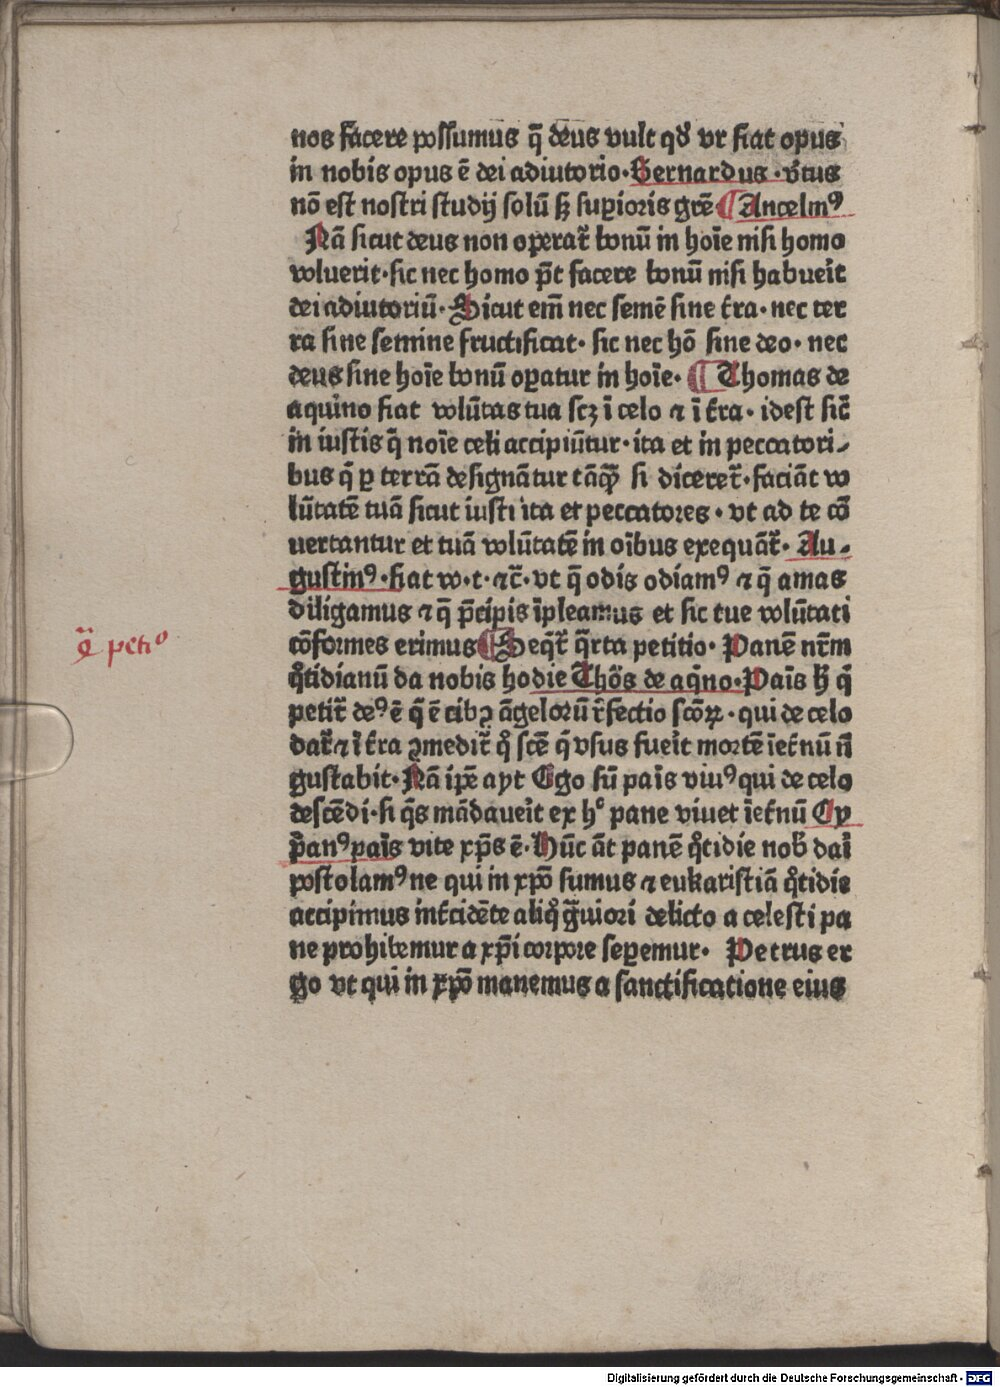 nos facere possumus q̄ deus vult qd' vt fiat opus
in nobis opus ē dei adiutorio · Bernardus · v̓tus
nō est nostri studij solū sꝫ suꝑioris grē ¶ Ancelmꝰ
Nā sicut deus non operat̄ bonū in hoīe nisi homo
voluerit · sic nec homo pōt facere bonū nisi habuerit
dei adiutoriū · Sicut em̄ nec semē sine t̓ra · nec ter
ra sine semine fructificat · sic nec hō sine deo · nec
deus sine hoīe bonū oꝑatur in hoīe · ¶ Thomas de
aquino fiat volūtas tua scꝫ ī celo ⁊ ī t̓ra · idest sic̄
in iustis q̄ noīe celi accipiūtur · ita et in peccatori-
bus q̄ ꝑ terrā designātur tāꝙ̄ si diceret̄ · faciāt vo
lūtatē tuā sicut iusti ita et peccatores · vt ad te cō
uertantur et tuā volūtatē in oībus exequāt̄ · Au-
gustinꝰ · fiat vo · t · ⁊c̄ · vt q̄ odis odiamꝰ ⁊ q̄ amas
diligamus ⁊ q̄ p̄cipis īpleamus et sic tue volūtati
cōformes erimus ¶ Seqt̄ q̄rta petitio · Panē nr̄m
q̊tidianū da nobis hodie Thōs de aq̄no · Panīs hꝰ q̄
petit̄ deꝰ ē q̄ ē cibꝰ āgelorū r̄fectio scōꝝ · qui de celo
dat̄ ⁊ ī t̓ra ꝯmedit̄ q̊ scē q̄ vsus fuerit mortē īet̓nū nō
gustabit · Nā ipē ayt Ego sū panīs viuꝰ qui de celo
descēdi · si q̄s mādauerit ex hᵒ pane viuet īet̓nū Cy
p̄anꝰ panīs vite xp̄s ē · Hūc āt panē q̊tidie nob̄ dari
postolamꝰ ne qui in xp̄o sumus ⁊ eukaristiā q̊tidie
accipimus int̓cidēte aliq̊ g̊uiori delicto a celesti pa
ne prohibemur a xp̄i corpore seꝑemur · Petrus er
go vt qui in xp̄o manemus a sanctificatione eius
q̈ petiᵒ
Digitalisierung gefördert durch die Deutsche Forschungsgemeinschaft · DFG